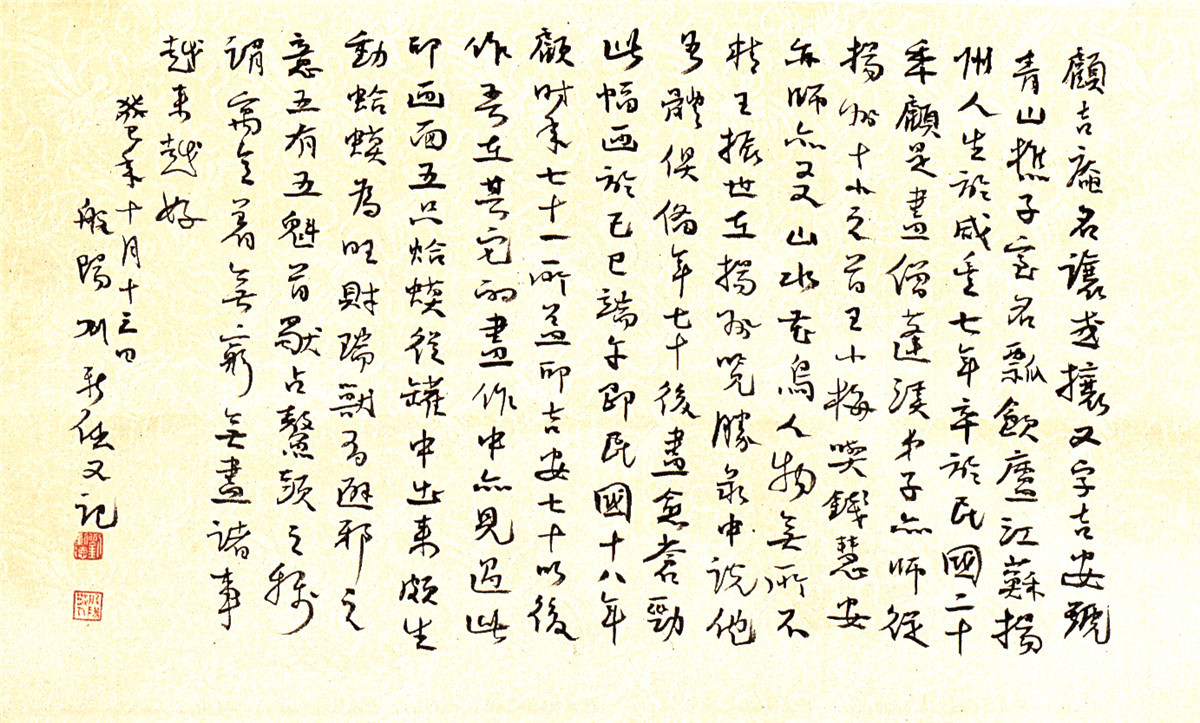 顧吉菴名讓或攘又字吉安號
青山樵子室名瓢飲廬江蘇揚
州人生於咸豐七年卒於民國二十
年顧是畫僧蓮溪弟子亦師從
揚州十小之首王小梅喫錢慧安
亦師亦友山水花鳥人物無所不
精王振世在揚州覽勝錄中說他
各體俱備年七十後畫愈蒼勁
此幅画於己巳端午即民國十八年
顧時年七十一所蓋印吉安七十以後
作吾在其它的畫作中亦見過此
印画面五只蛤蟆從罐中出来頗生
動蛤蟆為旺財瑞獸有避邪之
意五有五魁首獸占鰲頭之
謂寓意着無窮無盡諸事
越来越好
癸巳年十月十三日
般陽 又記